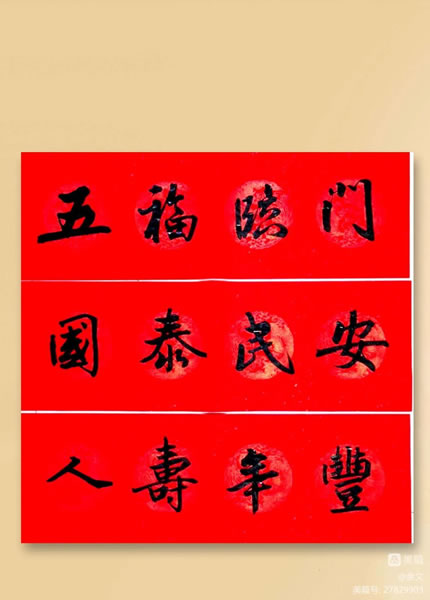 五福臨門
國泰民安
人壽年豐
美篇
@金文
美篇号: 27829901